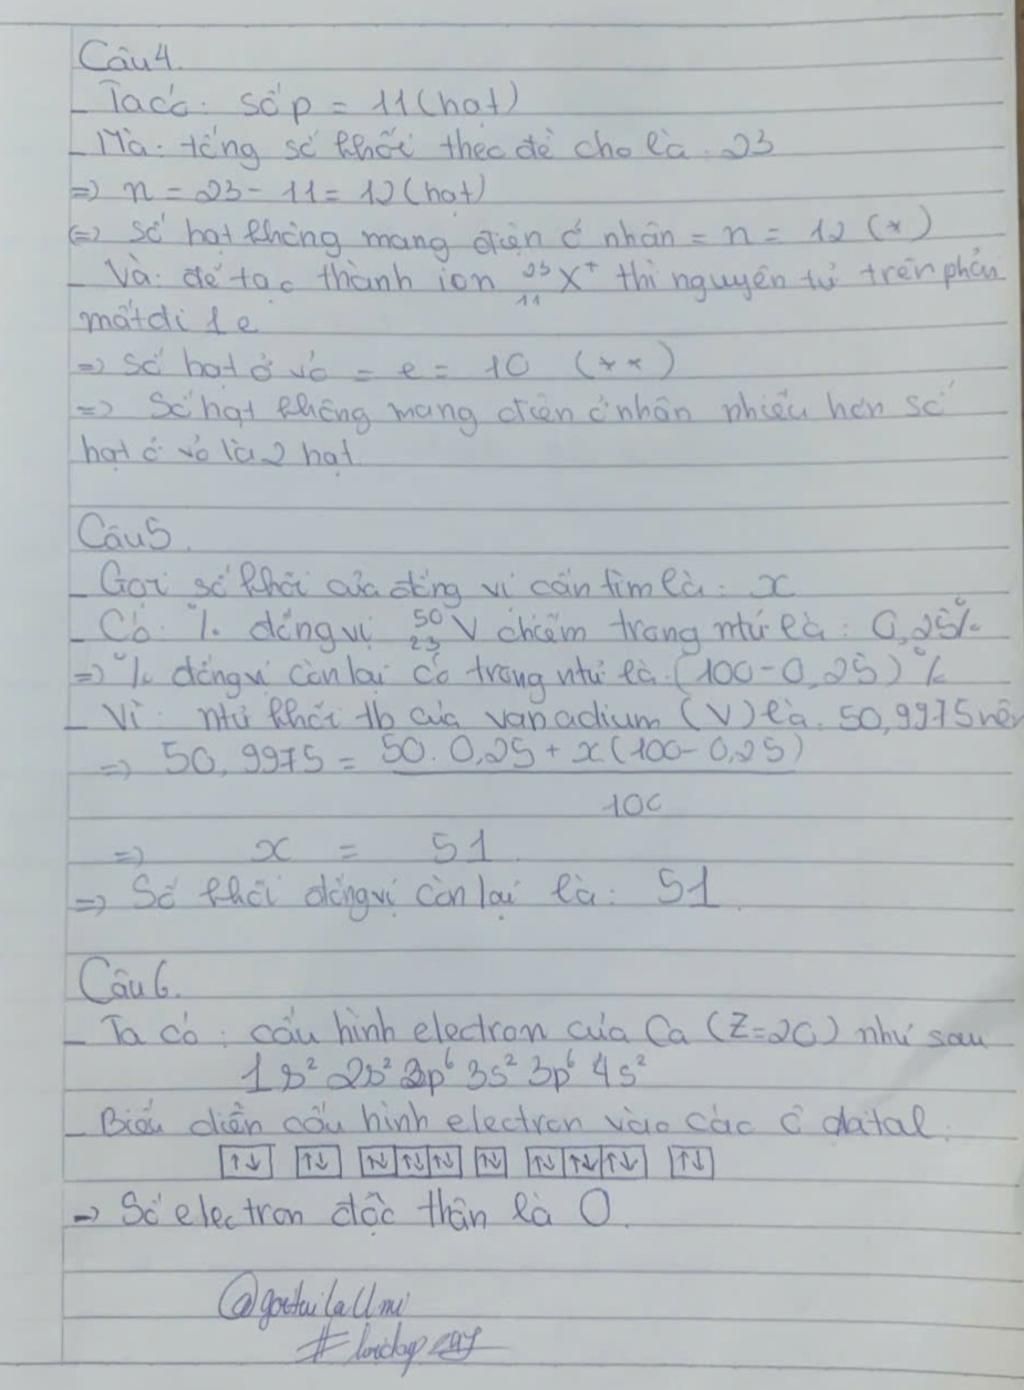 Câu 4.
- Ta có: số p = 11 (hạt)
- Mà: tổng số khối theo đề cho là: 23
=> n = 23 - 11 = 12 (hạt)
(=> số hạt không mang điện ở nhân = n = 12 (*)
- Và: để tạo thành ion ²³₁₁X⁺ thì nguyên tử trên phải
mất đi 1e
=> số hạt ở vỏ = e = 10 (**)
=> Số hạt không mang điện ở nhân nhiều hơn số
hạt ở vỏ là 2 hạt
Câu 5.
- Gọi số khối của đồng vị cần tìm là: x
- Có: % đồng vị ⁵⁰₂₃V chiếm trong ntử là: 0,25%
=> % đồng vị còn lại có trong ntử là: (100 - 0,25) %
- Vì: ntử khối tb của vanadium (V) là: 50,9975 nên
=> 50,9975 = 50. 0,25 + x (100 - 0,25)
100
=> x = 51
=> Số khối đồng vị còn lại là: 51.
Câu 6.
- Ta có: cấu hình electron của Ca (Z=20) như sau
1s² 2s² 2p⁶ 3s² 3p⁶ 4s²
- Biểu diễn cấu hình electron vào các ô obital:
↑↓ ↑↓ ↑↓ ↑↓ ↑↓ ↑↓ ↑↓ ↑↓ ↑↓ ↑↓
-> Số electron độc thân là 0.